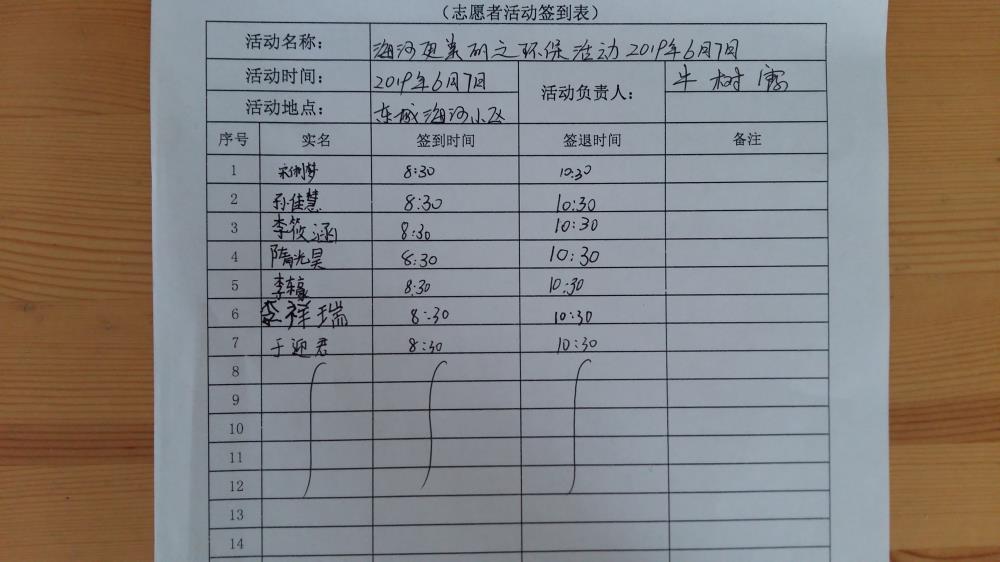 （志愿者活动签到表）
活动名称： 海河更美丽之环保活动 2019年6月7日
活动时间： 2019年6月7日 活动负责人： 牛树
活动地点： 东城海河小区
序号 实名 签到时间 签退时间 备注
1 8:30 10:30
2 孙佳慧 8:30 10:30
3 李筱涵 8:30 10:30
4 隋光昊 8:30 10:30
5 李东豪 8:30 10:30
6 李祥瑞 8:30 10:30
7 于迎君 8:30 10:30
8
9
10
11
12
13
14